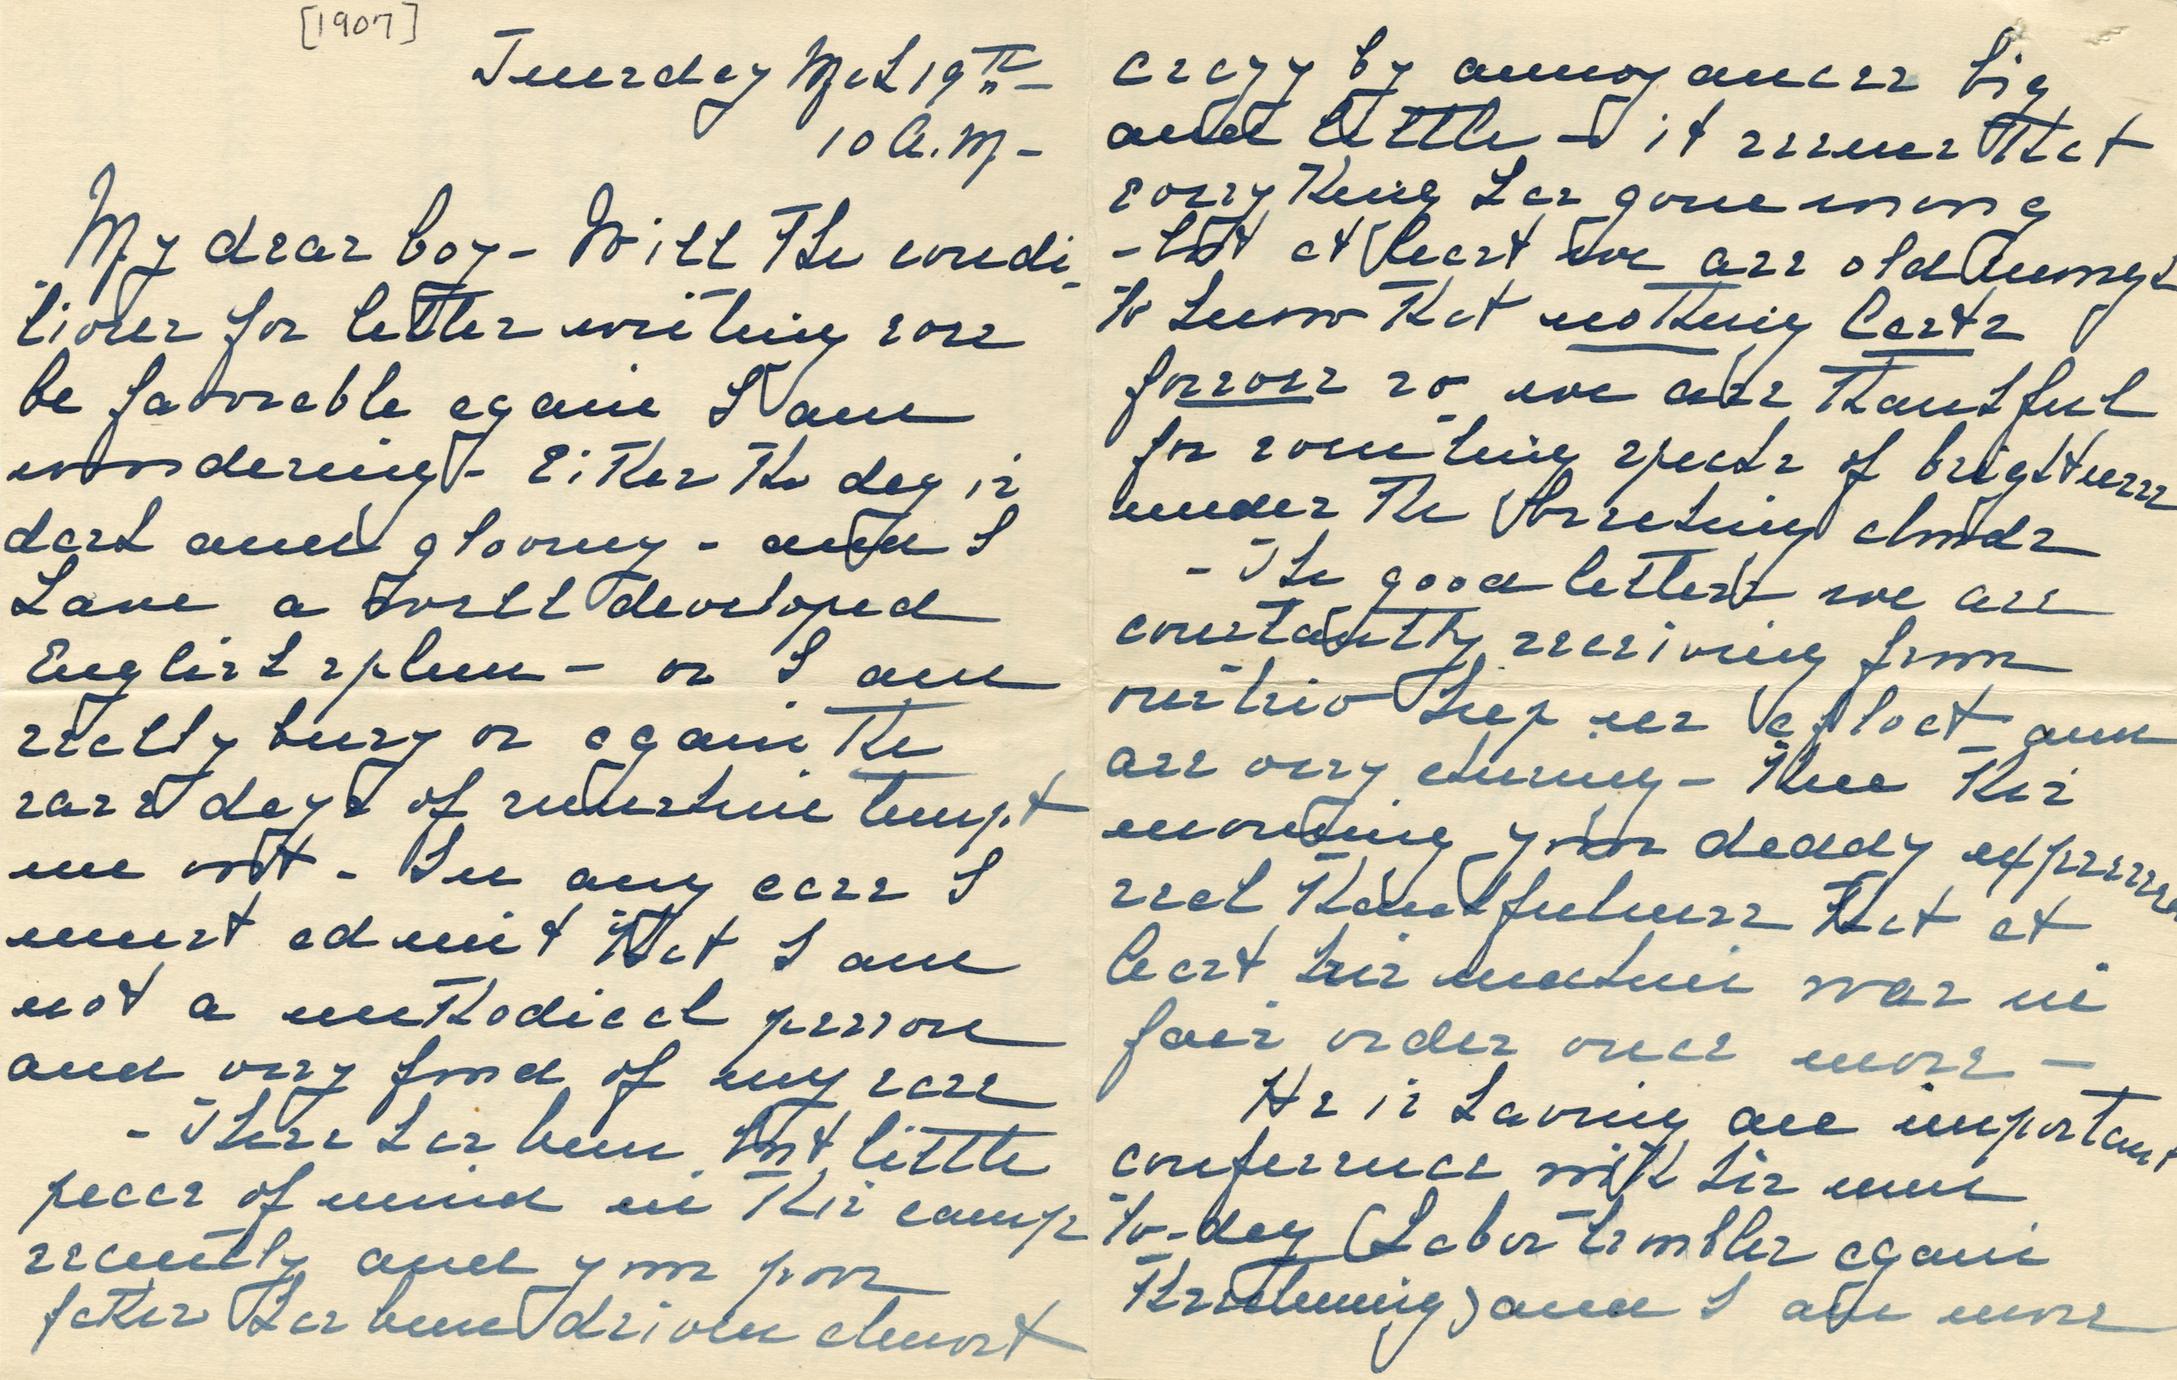 [1907]
Tuesday Mch 19th –
10 A.M –
My dear boy – Will the condi-
tions for letter writing ever
be favorable again I am
wondering – Either the day is
dark and gloomy – and I
have a well developed
English spleen – or I am
really busy or again the
rare days of sunshine tempt
me out – In any case I
must admit that I am
not a methodical person
and very fond of my ease
– There has been but little
peace of mind in this camp
recently and your poor
father has been driven almost
crazy by annoyances big
and little – it seems that
everything has gone wrong
– but at least we are old enough
to know that nothing lasts
forever so we are thankful
for something specks of brightness
under the breaking clouds
– The good letters we are
constantly receiving from
our trio keep us afloat and
are very cheering – then this
morning your daddy expressed
real thankfulness that at
least his machine was in
fair order once more –
He is having an important
conference with his men
to-day (Labor troubles again
threatening) and I am more